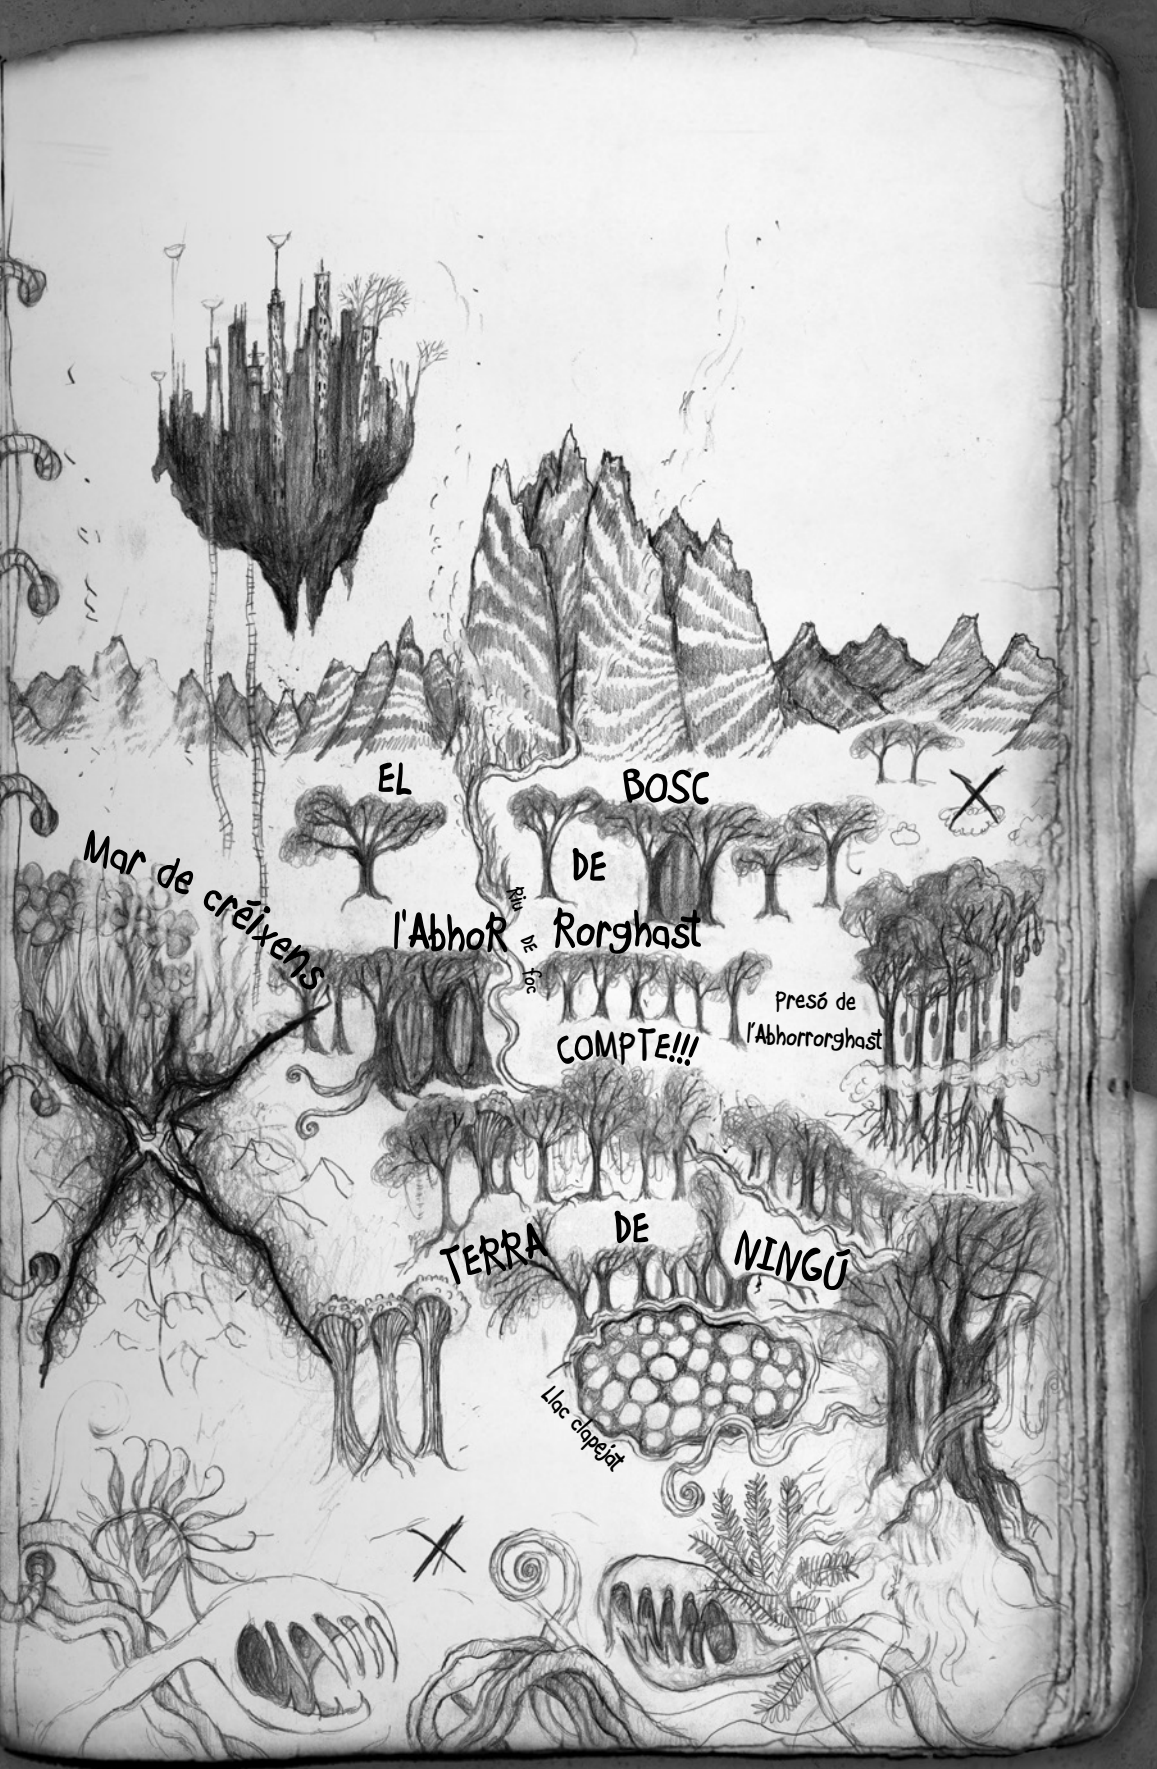 EL BOSC
DE
l'AbhoR Rorghast
Mar de créixens
Riu DE foc
Presó de
l'Abhorrorghast
COMPTE!!!
TERRA DE NINGÚ
Llac clapejat